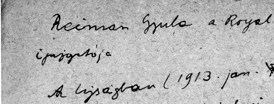 Reiman Gyula a Royal
igazgatója
Az Ujságban (1913. jan.